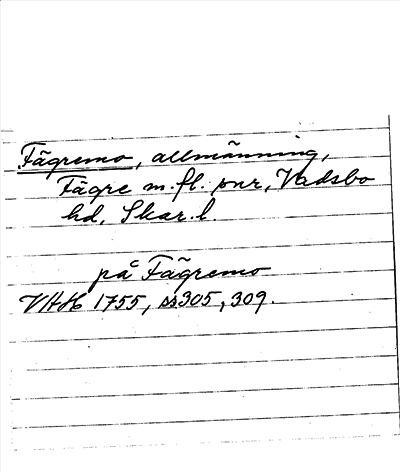 Fägremo, allmänning,
Fägre m.fl. snr, Vadsbo
hd, Skar. l.
på Fägremo
VHH 1755, ss 305, 309.